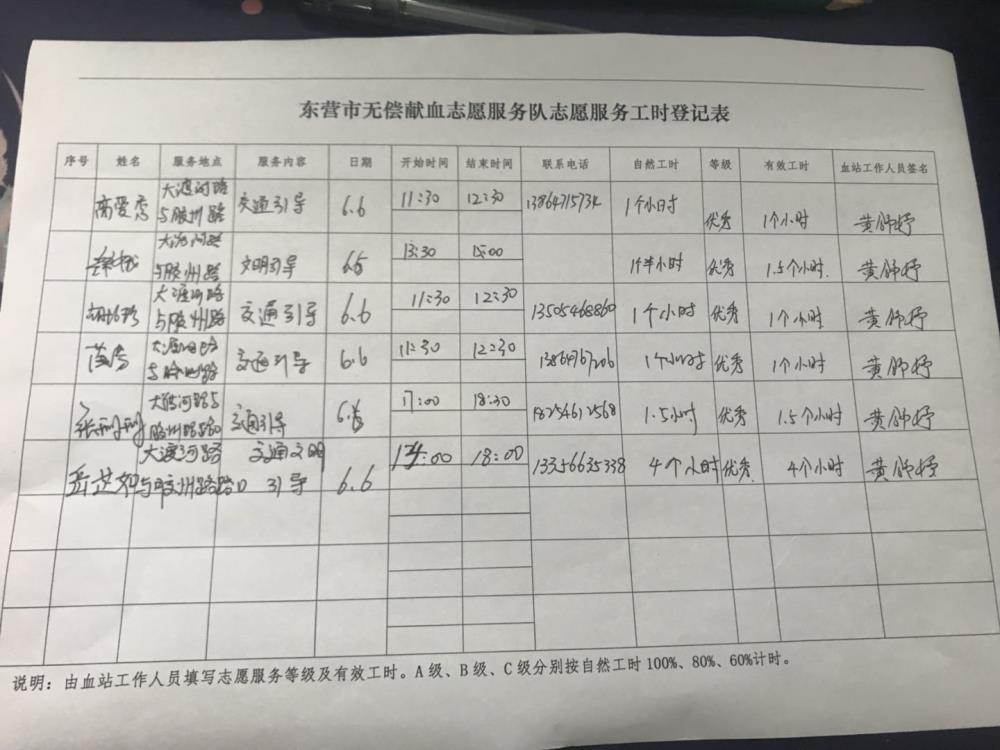 东营市无偿献血志愿服务队志愿服务工时登记表
序号 姓名 服务地点 服务内容 日期 开始时间 结束时间 联系电话 自然工时 等级 有效工时 血站工作人员签名
高爱秀 大渡河路 交通引导 6.6 11:30 12:30 1个小时 优秀 1个小时 黄帅抒
与胶州路
大渡河路 文明引导 13:30 15:00 1个半小时 优秀 1.5个小时. 黄帅抒
与胶州路
大渡河路 交通引导 6.6 11:30 12:30 13505468860 1个小时 优秀 1个小时 黄帅抒
与胶州路
大渡河路 交通引导 6.6 11:30 12:30 13864767206 1个小时 优秀 1个小时 黄帅抒
大渡河路与 交通引导 17:00 18:30 18254612568 1.5小时 优秀 1.5个小时 黄帅抒
胶州路路口
大渡河路 交通文明 14:00 18:00 13356635338 4个小时 优秀 4个小时 黄帅抒
与胶州路路口 引导 6.6
说明：由血站工作人员填写志愿服务等级及有效工时。A级、B级、C级分别按自然工时100%、80%、60%计时。